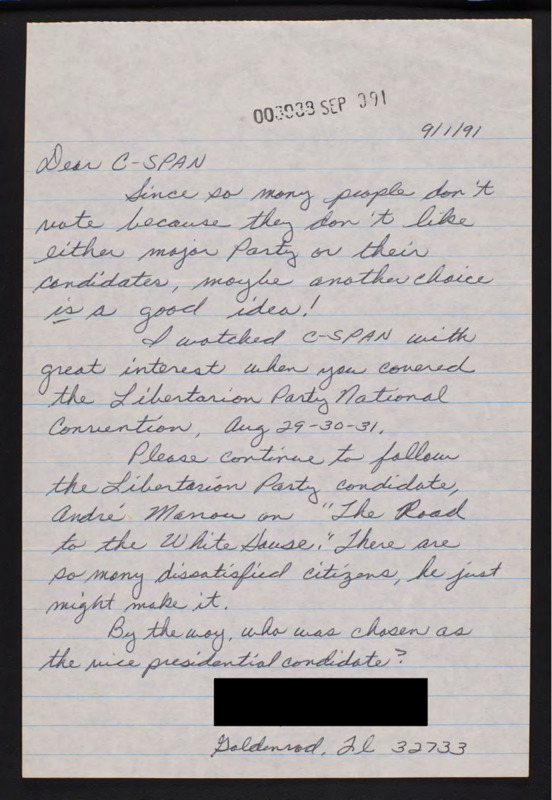 SEP 91
9/1/91
Dear C-SPAN
Since so many people don't
vote because they don't like
either major Party or their
candidates, maybe another choice
is a good idea!
I watched C-SPAN with
great interest when you covered
the Libertarian Party National
Convention, Aug 29-30-31.
Please continue to follow
the Libertarian Party candidate,
André Marrou on "The Road
to the White House." There are
so many dissatisfied citizens, he just
might make it.
By the way, who was chosen as
the vice presidential candidate?
Goldenrod, Fl 32733